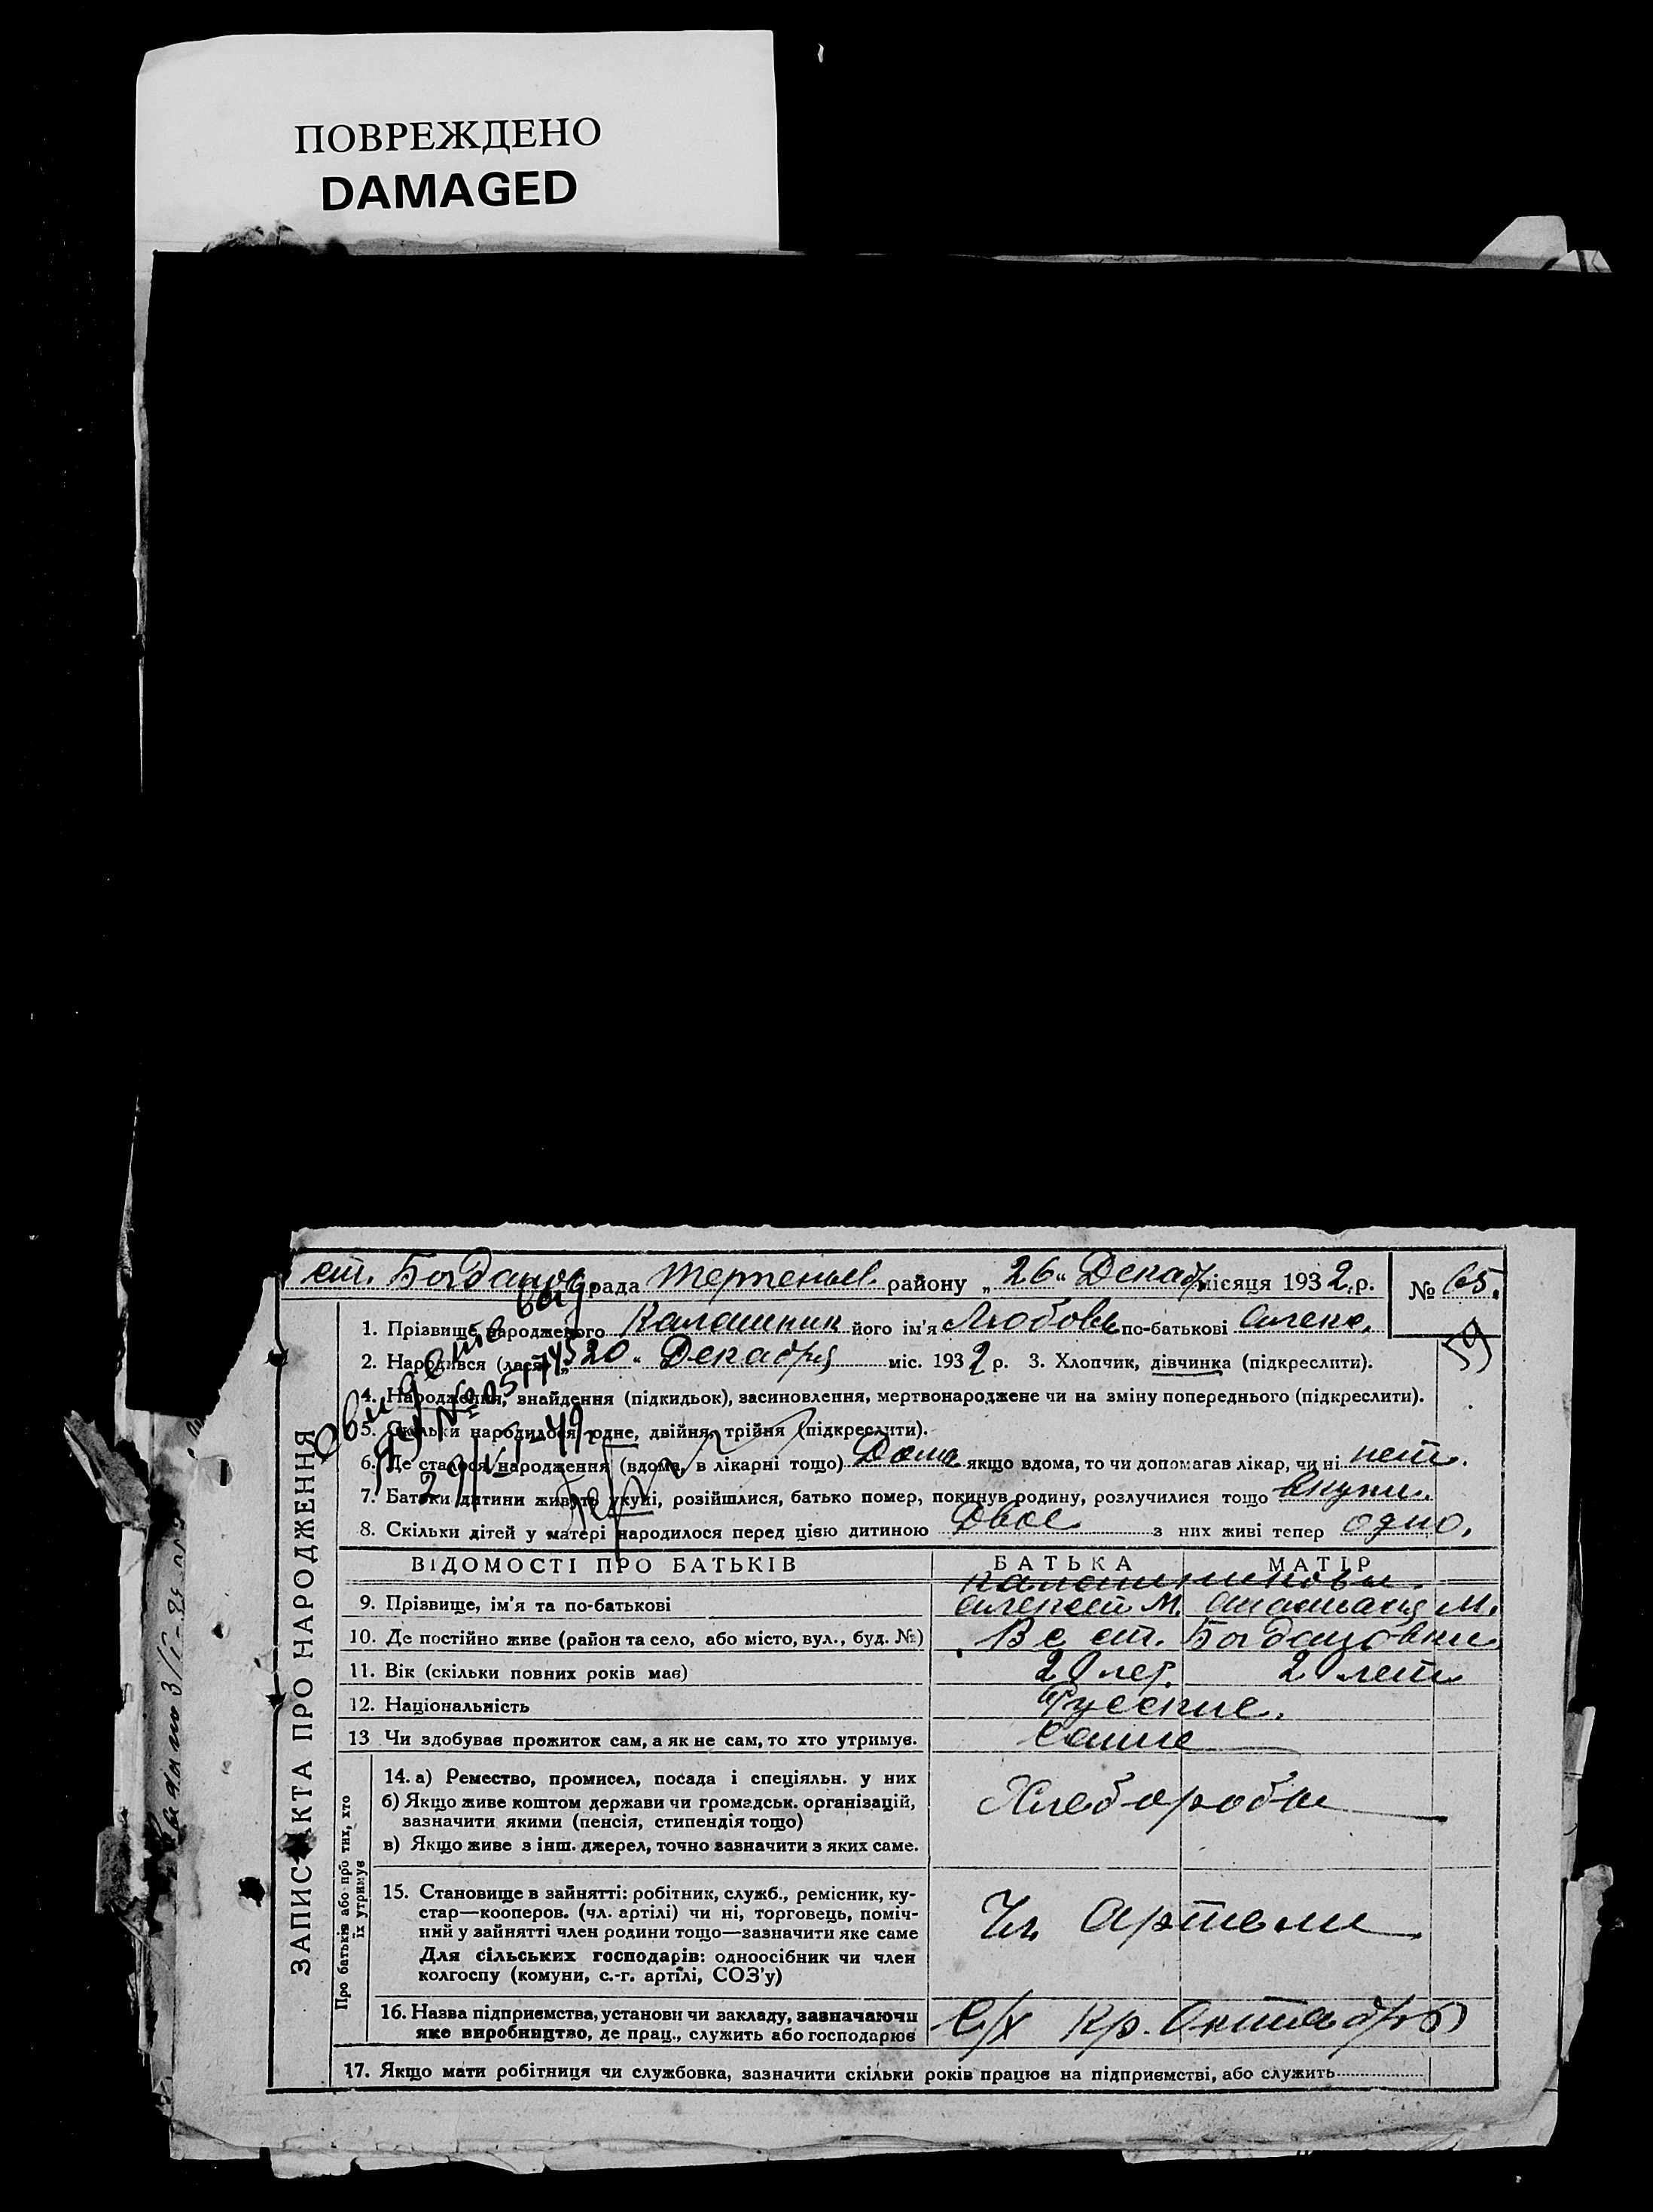 ПОВРЕЖДЕНО
DAMAGED
ст. Богданов. рада Терпеньев. району „26“ Декабр місяця 1932 р. № 65.
59
1. Прізвище народженого Калашник його ім'я Любовь по-батькові Алекс.
2. Народився (лася) „20“ Декабря міс. 1932 р. 3. Хлопчик, дівчинка (підкреслити).
4. Народження, знайдення (підкидьок), засиновлення, мертвонароджене чи на зміну попереднього (підкреслити).
5. Скільки народилося одне, двійня, трійня (підкреслити).
6. Де сталося народження (вдома, в лікарні тощо) Дома якщо вдома, то чи допомагав лікар, чи ні нет.
7. Батьки дитини живуть укупі, розійшлися, батько помер, покинув родину, розлучилися тощо вкупи.
8. Скільки дітей у матері народилося перед цією дитиною Двое з них живі тепер одно.
ВІДОМОСТІ ПРО БАТЬКІВ БАТЬКА МАТІР
Калашниковы.
9. Прізвище, ім'я та по-батькові Алексей М. М.
10. Де постійно живе (район та село, або місто, вул., буд. №) В с ст. Богдановки
11. Вік (скільки повних років має) лет. лет
12. Національність Русские.
13 Чи здобуває прожиток сам, а як не сам, то хто утримує. Сами
14. а) Ремество, промисел, посада і спеціяльн. у них
б) Якщо живе коштом держави чи громадськ. організацій,
зазначити якими (пенсія, стипендія тощо)
в) Якщо живе з інш. джерел, точно зазначити з яких саме.
Хлеборобы
15. Становище в зайнятті: робітник, служб., ремісник, ку-
стар—кооперов. (чл. артілі) чи ні, торговець, поміч-
ний у зайнятті член родини тощо—зазначити яке саме
Для сільських господарів: одноосібник чи член
колгоспу (комуни, с.-г. артілі, СОЗ'у)
Чл. Артели
16. Назва підприємства, установи чи закладу, зазначаючи
яке виробництво, де прац., служить або господарює
С/х Кр. Октябрь
17. Якщо мати робітниця чи службовка, зазначити скільки років працює на підприємстві, або служить
ЗАПИС АКТА ПРО НАРОДЖЕННЯ
Про батьків або про тих, хто
їх утримує